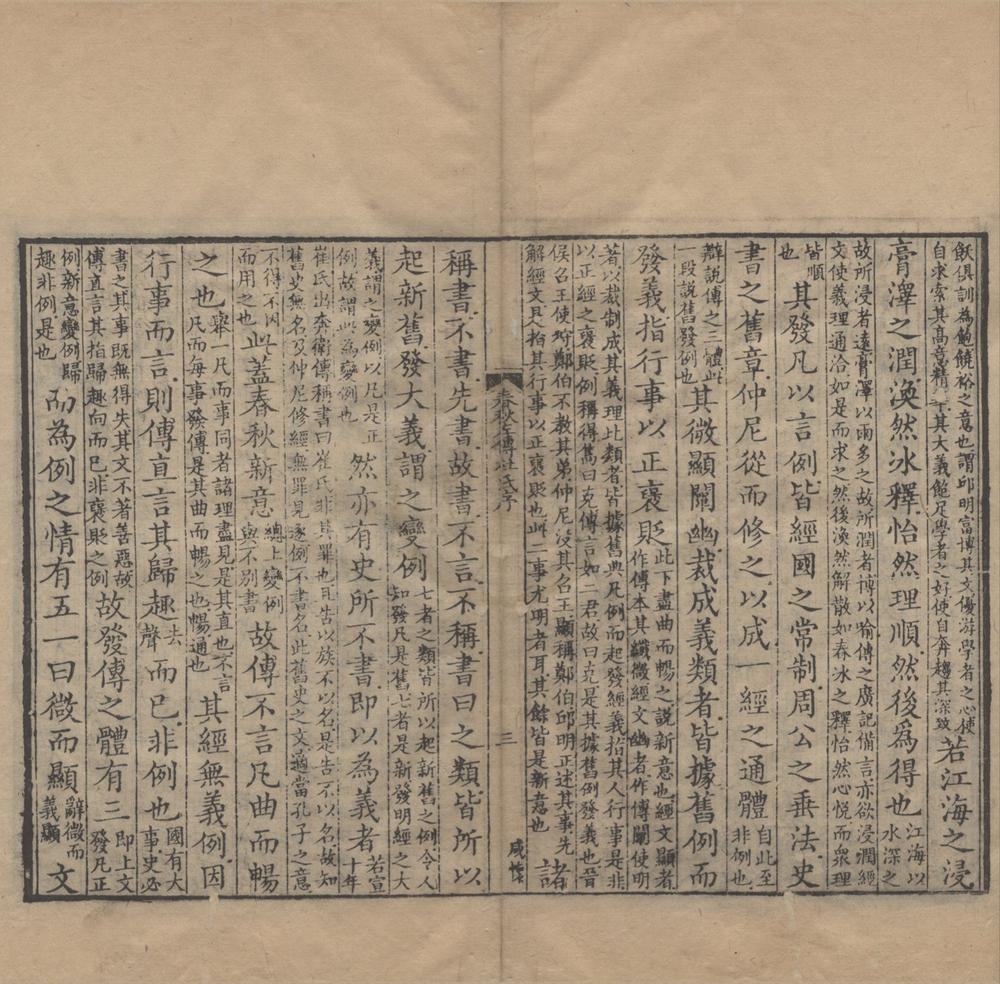 飫俱訓為飽饒裕之意也謂邱明富博其文優游學者之心使
自求索其高章精其大義飽足學者之好使自奔趨其深致
若江海之浸
膏澤之潤渙然冰釋怡然理順然後為得也
江海以
水深之
故所浸者遠膏澤以雨多之故所潤者博以喻傳之廣記備言亦欲浸潤經
文使義理通洽如是而求之然後渙然解散如春冰之釋怡然心悅而眾理
皆順
也
其發凡以言例皆經國之常制周公之垂法史
書之舊章仲尼從而修之以成一經之通體
自此至
非例也
辯說傳之三體此
一段說舊發例也
其微顯闡幽裁成義類者皆據舊例而
發義指行事以正褒貶
此下盡曲而暢之說新意也經文顯者
作傳本其纖微經文幽者作傳闡使明
著以裁制成其義理比類者皆據舊典凡例而起發經義指其人行事是非
以正經之褒貶例稱得雋曰克傳言如二君故曰克是其據舊例發義也晉
侯召王使狩鄭伯不教其弟仲尼沒其召王顯稱鄭伯邱明正述其事先
解經文且人指其行事以正褒貶也此二事尤明者耳其餘皆是新意也
諸
春秋左傳杜氏序
三
稱書不書先書故書不言不稱書曰之類皆所以
起新舊發大義謂之變例
七者之類皆所以起新舊之例令人
知發凡是舊七者是新發明經之大
義謂之變例以凡是正
例故謂此為變例也
然亦有史所不書即以為義者
若宣
十年
崔氏出奔衛傳稱書曰崔氏非其罪也且告以族不以名是告不以名故知
舊史無名及仲尼修經無罪見逐例不書名此舊史之文適當孔子之意
不得不因
而用之也
此蓋春秋新意
總上變例
與不別書
故傳不言凡曲而暢
之也
舉一凡而事同者諸理盡見是其直也不言
凡而每事發傳是其曲而暢之也暢通也
其經無義例因
行事而言則傳直言其歸趣
去
聲
而已非例也
國有大
事史必
書之其事既無得失其文不著善惡故
傳直言其指歸趣向而已非褒貶之例
故發傳之體有三
即上文
發凡正
例新意變例歸
趣非例是也
而為例之情有五一曰微而顯
辭微而
義顯
文